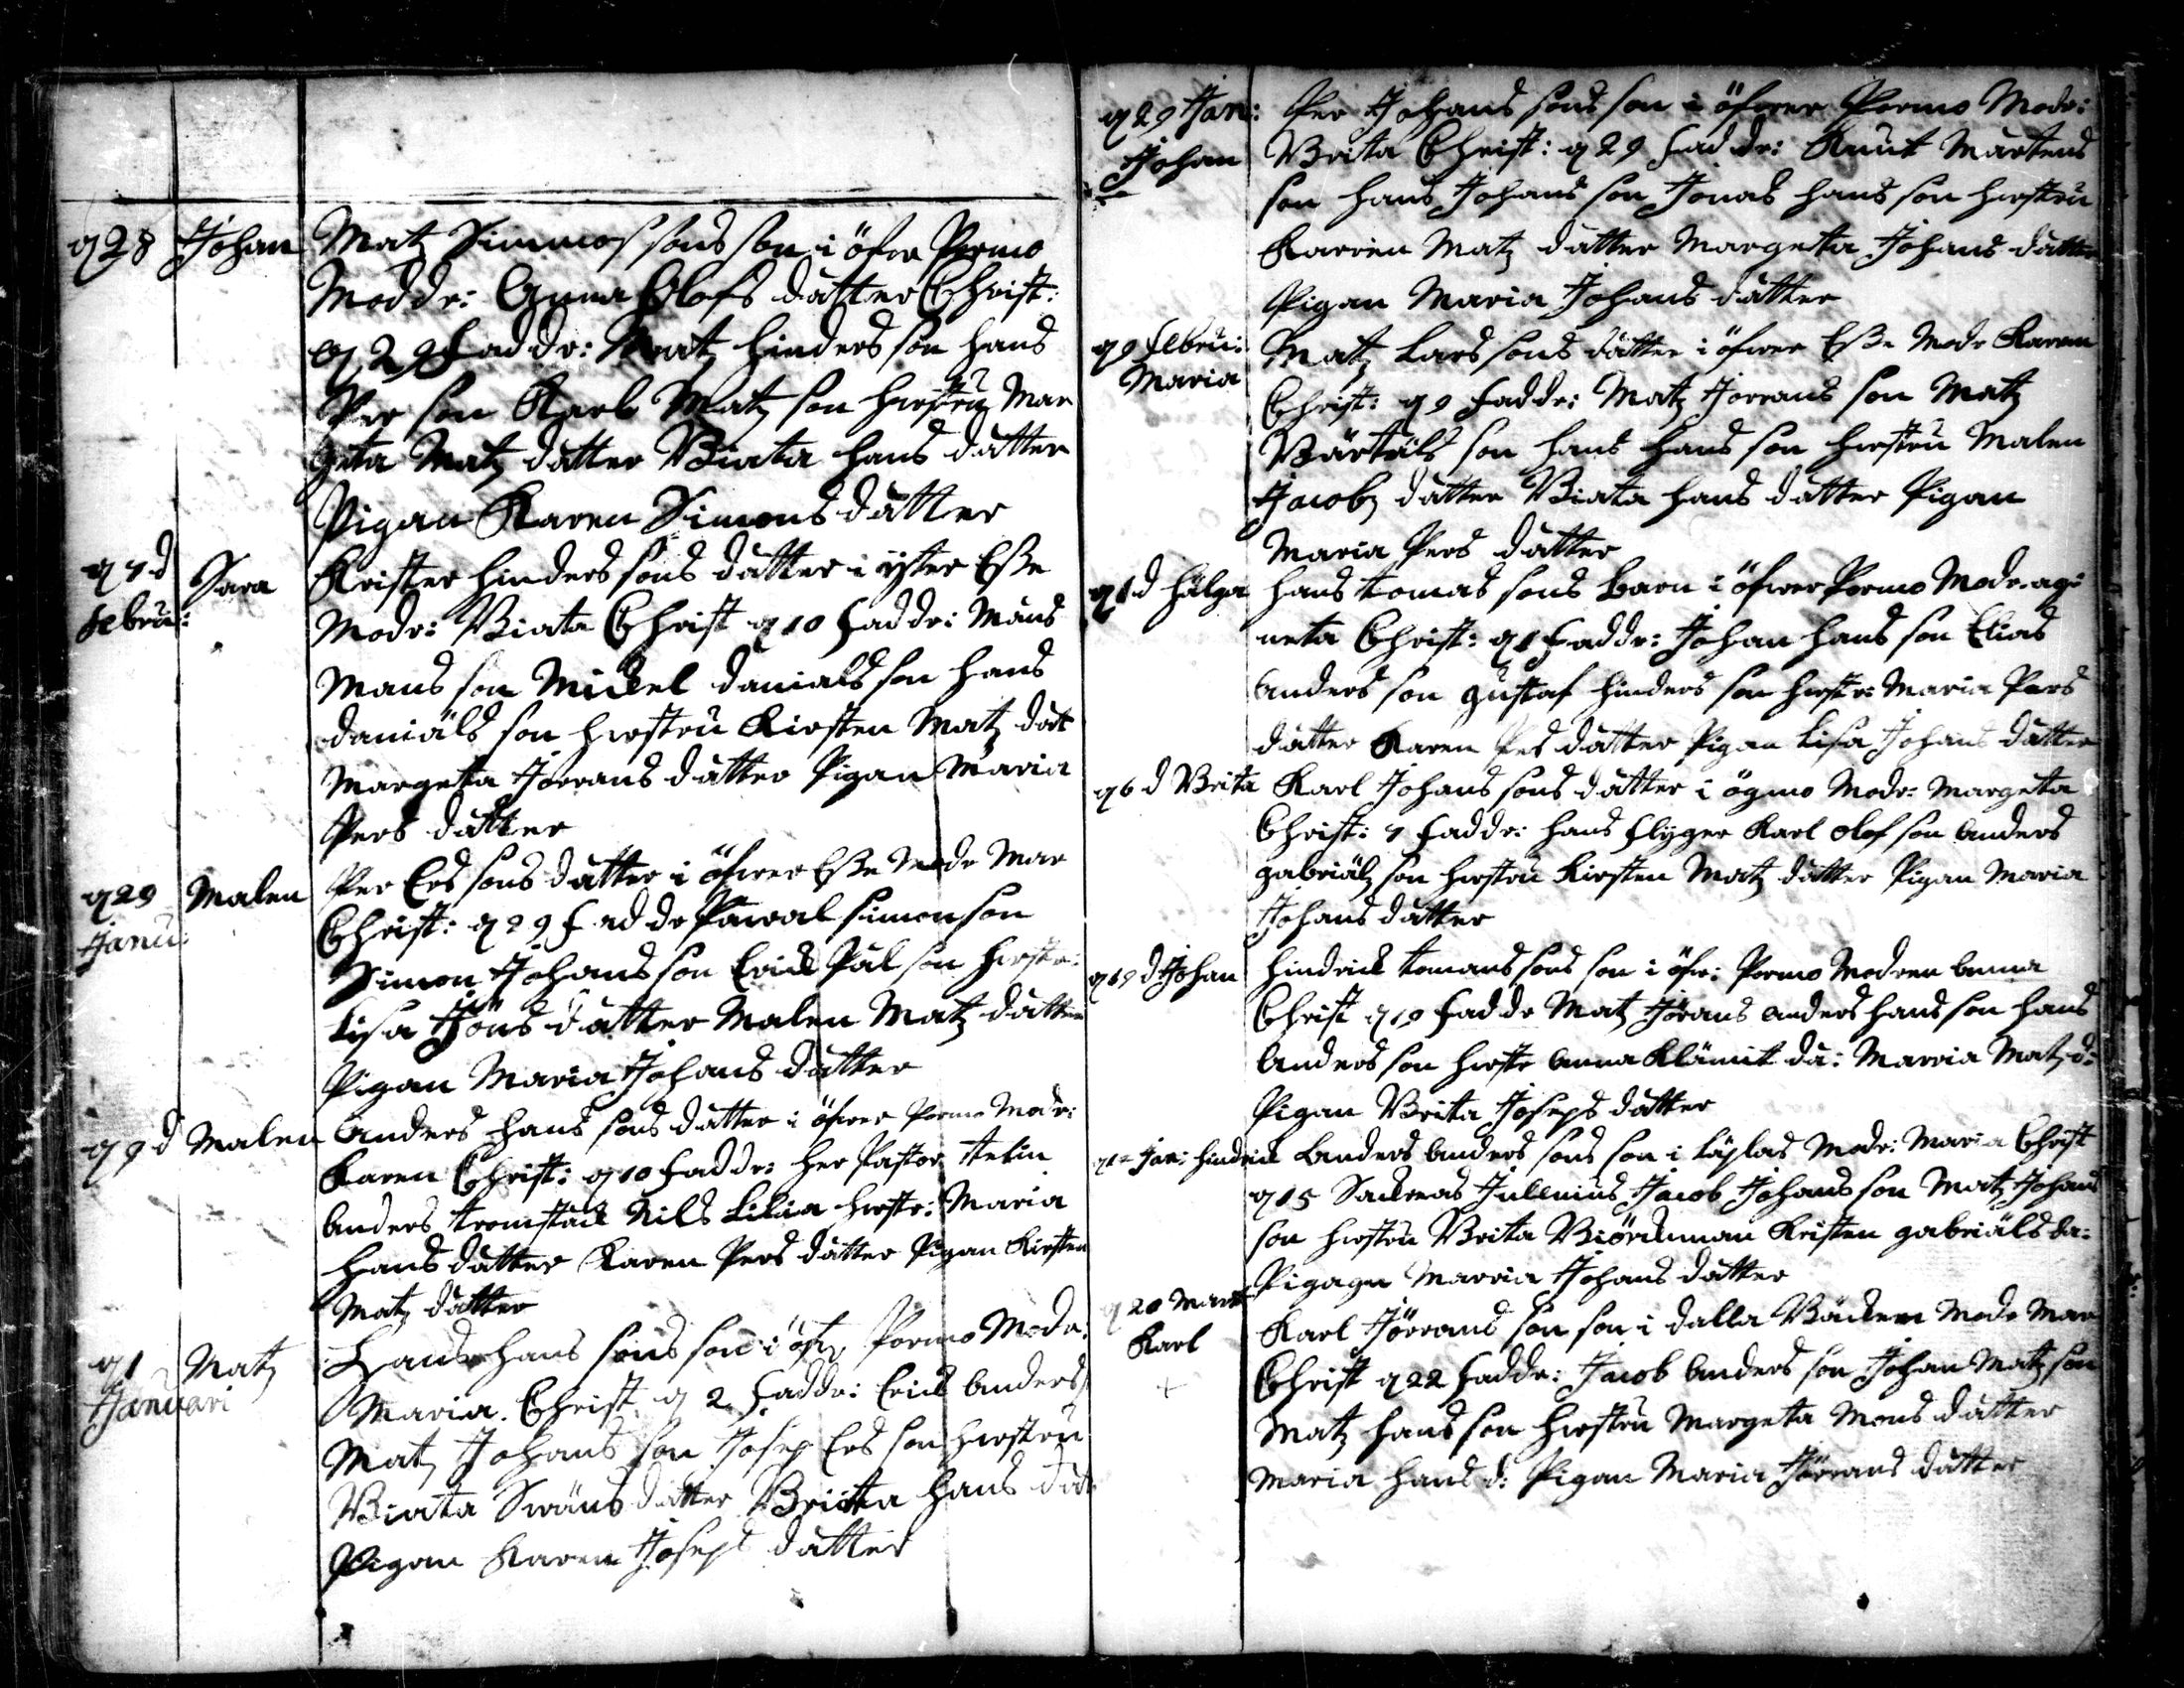 q 28 Johan Matz Simmossons son i öfre Pormo
Modr: Anna Olofs datter Christ:
q 29 Faddr: Matz Hinders son Hans
Per son Karl Matz son Hustru Mar
geta Matz datter Biata Hans datter
Pigan Karen Simons datter
q 7 d Febru: Sara Krister Hinders sons datter i ytter Esse
Modr: Biata Christ q 10 Faddr: Måns
Mans son Mickel Danials son Hans
Daniäls son Hustru Kirsten Matz dat
Margeta Jorrans datter Pigan Maria
Pers datter
q 29 Janu: Malen Per Ers sons datter i öfwer Esse Modr Mar
Christ: q 29 Faddr Pawal Simonson
Simon Johans son Erick Pål son Hustr:
Lisa Jöns datter Malen Matz datter
Pigan Maria Johans datter
q 9 d Malen Anders Hans sons datter i öfwer Pormo Modr:
Karen Christ: q 10 Faddr: Her Pastor
Anders Nils Lilia Hustr: Maria
Hans datter Karen Pers datter Pigan Kirsten
Matz datter
q 1 Januari Matz Hans Hans sons son i öfre Pormo Modr:
Maria Christ. q 2 Faddr: Erick Anders
Matz Johans son Josep Ers son Hustru
Biata Swäns datter Britta Hans dat
Pigan Karen Joseps datter
q 29 Jan: Per Johans sons son i öfwer Pormo Modr:
Johan Brita Christ: q 29 Faddr: Knut Mårtens
son Hans Johans son Jonas Hans son Hustru
Karrin Matz datter Margeta Johans datter
Pigan Maria Johans datter
q 9 Febru: Matz Lars sons datter i öfwer Esse Modr Karen
Maria Christ: q 9 Faddr: Matz Jorrans son Matz
Bärtäls son Hans Hans son Hustru Malen
Jacobz datter Biata Hans datter Pigan
Maria Pers datter
q 1 d Hälga Hans Tomas sons Barn i öfwer Pormo Modr. Ag
neta Christ: q 1 Faddr: Johan Hans son Elias
Anders son Gustaf Hinders son Hustr: Maria Pers
datter Karen Pes datter Pigan Lisa Johans datter
q 6 d Brita Karl Johans sons datter i ögmo Modr: Margeta
Christ: 7 Faddr: Hans Flyger Karl Olof son Anders
Gabriälz son Hustru Kirsten Matz datter Pigan Maria
Johans datter
q 19 d Johan Hindrick Tomans sons son i öfr: Pormo Modren Anna
Christ q 19 Faddr Matz Jörans Anders Hans son Hans
Anders son Hustr Anna Klämit da: Marria Matz d:
Pigan Brita Joseps datter
q 12 Jan: Hindrick Anders Anders sons son i Läplas Modr: Maria Christ
q 15 Sackreas Jullenius Jacob Johans son Matz Johans
son Hustru Brita Biörckman Kristen Gabriäls da:
Pigagn Marria Johans datter
q 20 Mart Karl Jörrans son son i Dalla Backen Modr Mar
Karl Christ q 22 Faddr: Jacob Anders son Johan Matz son
Matz Hans son Hustru Margeta Mons datter
Maria Hans d: Pigan Maria Jörrans datter